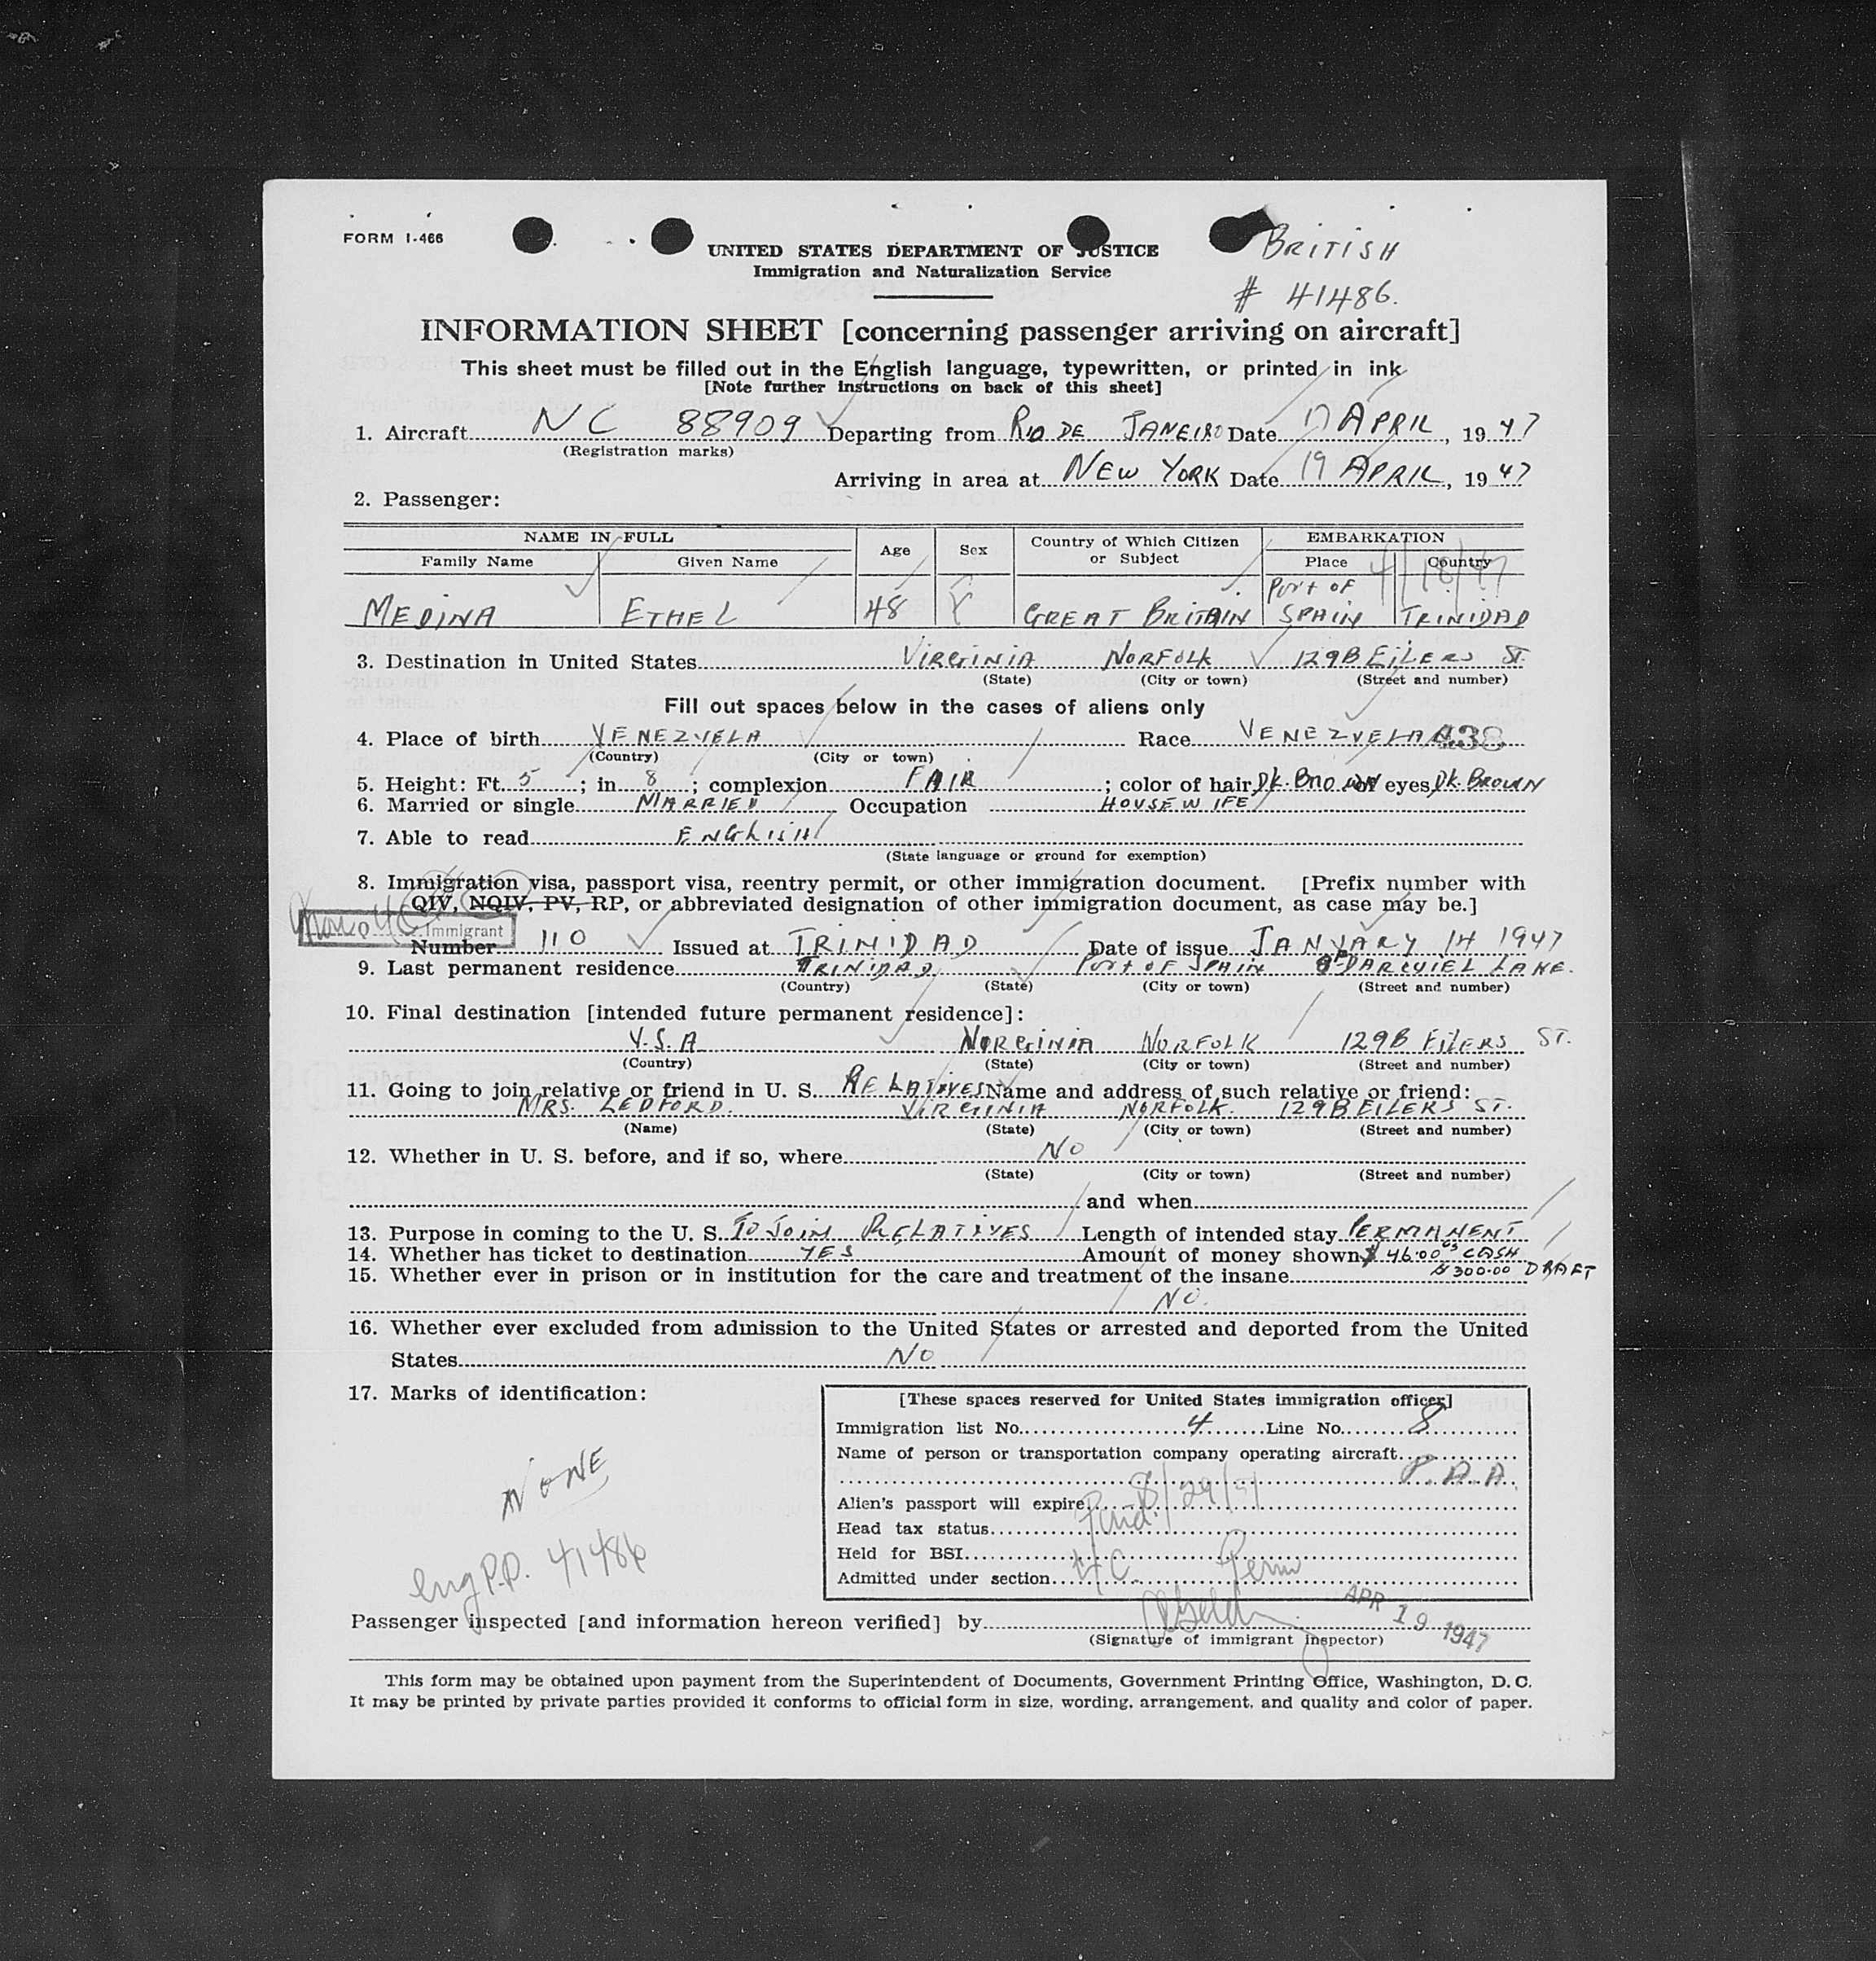 FORM I-466
UNITED STATES DEPARTMENT OF JUSTICE
Immigration and Naturalization Service
BRITISH
# 41486.
INFORMATION SHEET [concerning passenger arriving on aircraft]
This sheet must be filled out in the English language, typewritten, or printed in ink
[Note further instructions on back of this sheet]
1. Aircraft NC 88909 Departing from RIO DE JANEIRO Date 17 APRIL, 1947
(Registration marks)
Arriving in area at NEW YORK Date 19 APRIL, 1947
2. Passenger:
NAME IN FULL Age Sex Country of Which Citizen or Subject EMBARKATION
Family Name Given Name Place Country
4/18/47
MEDINA ETHEL 48 GREAT BRITAIN Port OF SPAIN TRINIDAD
3. Destination in United States VIRGINIA NORFOLK 129B EILERS ST.
(State) (City or town) (Street and number)
Fill out spaces below in the cases of aliens only
4. Place of birth VENEZUELA Race VENEZUELAN 438
(Country) (City or town)
5. Height: Ft. 5; in 8; complexion FAIR; color of hair DK. BROWN eyes DK. BROWN
6. Married or single MARRIED Occupation HOUSEWIFE
7. Able to read ENGLISH
(State language or ground for exemption)
8. Immigration visa, passport visa, reentry permit, or other immigration document. [Prefix number with
QIV, NQIV, PV, RP, or abbreviated designation of other immigration document, as case may be.]
Immigrant
Number 110 Issued at TRINIDAD Date of issue JANUARY 14 1947
9. Last permanent residence TRINIDAD Port OF SPAIN DARCUIEL LANE.
(Country) (State) (City or town) (Street and number)
10. Final destination [intended future permanent residence]:
U.S.A NORGINIA NORFOLK 129B EILERS ST.
(Country) (State) (City or town) (Street and number)
11. Going to join relative or friend in U. S. RELATIVES Name and address of such relative or friend:
MRS. LEDFORD. VIRGINIA NORFOLK. 129B EILERS ST.
(Name) (State) (City or town) (Street and number)
12. Whether in U. S. before, and if so, where NO
(State) (City or town) (Street and number)
and when
13. Purpose in coming to the U. S. TO JOIN RELATIVES Length of intended stay PERMANENT
14. Whether has ticket to destination YES Amount of money shown $46.00 CASH
15. Whether ever in prison or in institution for the care and treatment of the insane $300.00 DRAFT
NO.
16. Whether ever excluded from admission to the United States or arrested and deported from the United
States NO
17. Marks of identification:
NONE
eng P.P. 41486
[These spaces reserved for United States immigration officer]
Immigration list No. 4 Line No. 8
Name of person or transportation company operating aircraft
P.A.A.
Alien's passport will expire 8/29/51
Head tax status Paid.
Held for BSI
Admitted under section 4C. Perm
APR 19 1947
Passenger inspected [and information hereon verified] by
(Signature of immigrant inspector)
This form may be obtained upon payment from the Superintendent of Documents, Government Printing Office, Washington, D. C.
It may be printed by private parties provided it conforms to official form in size, wording, arrangement, and quality and color of paper.